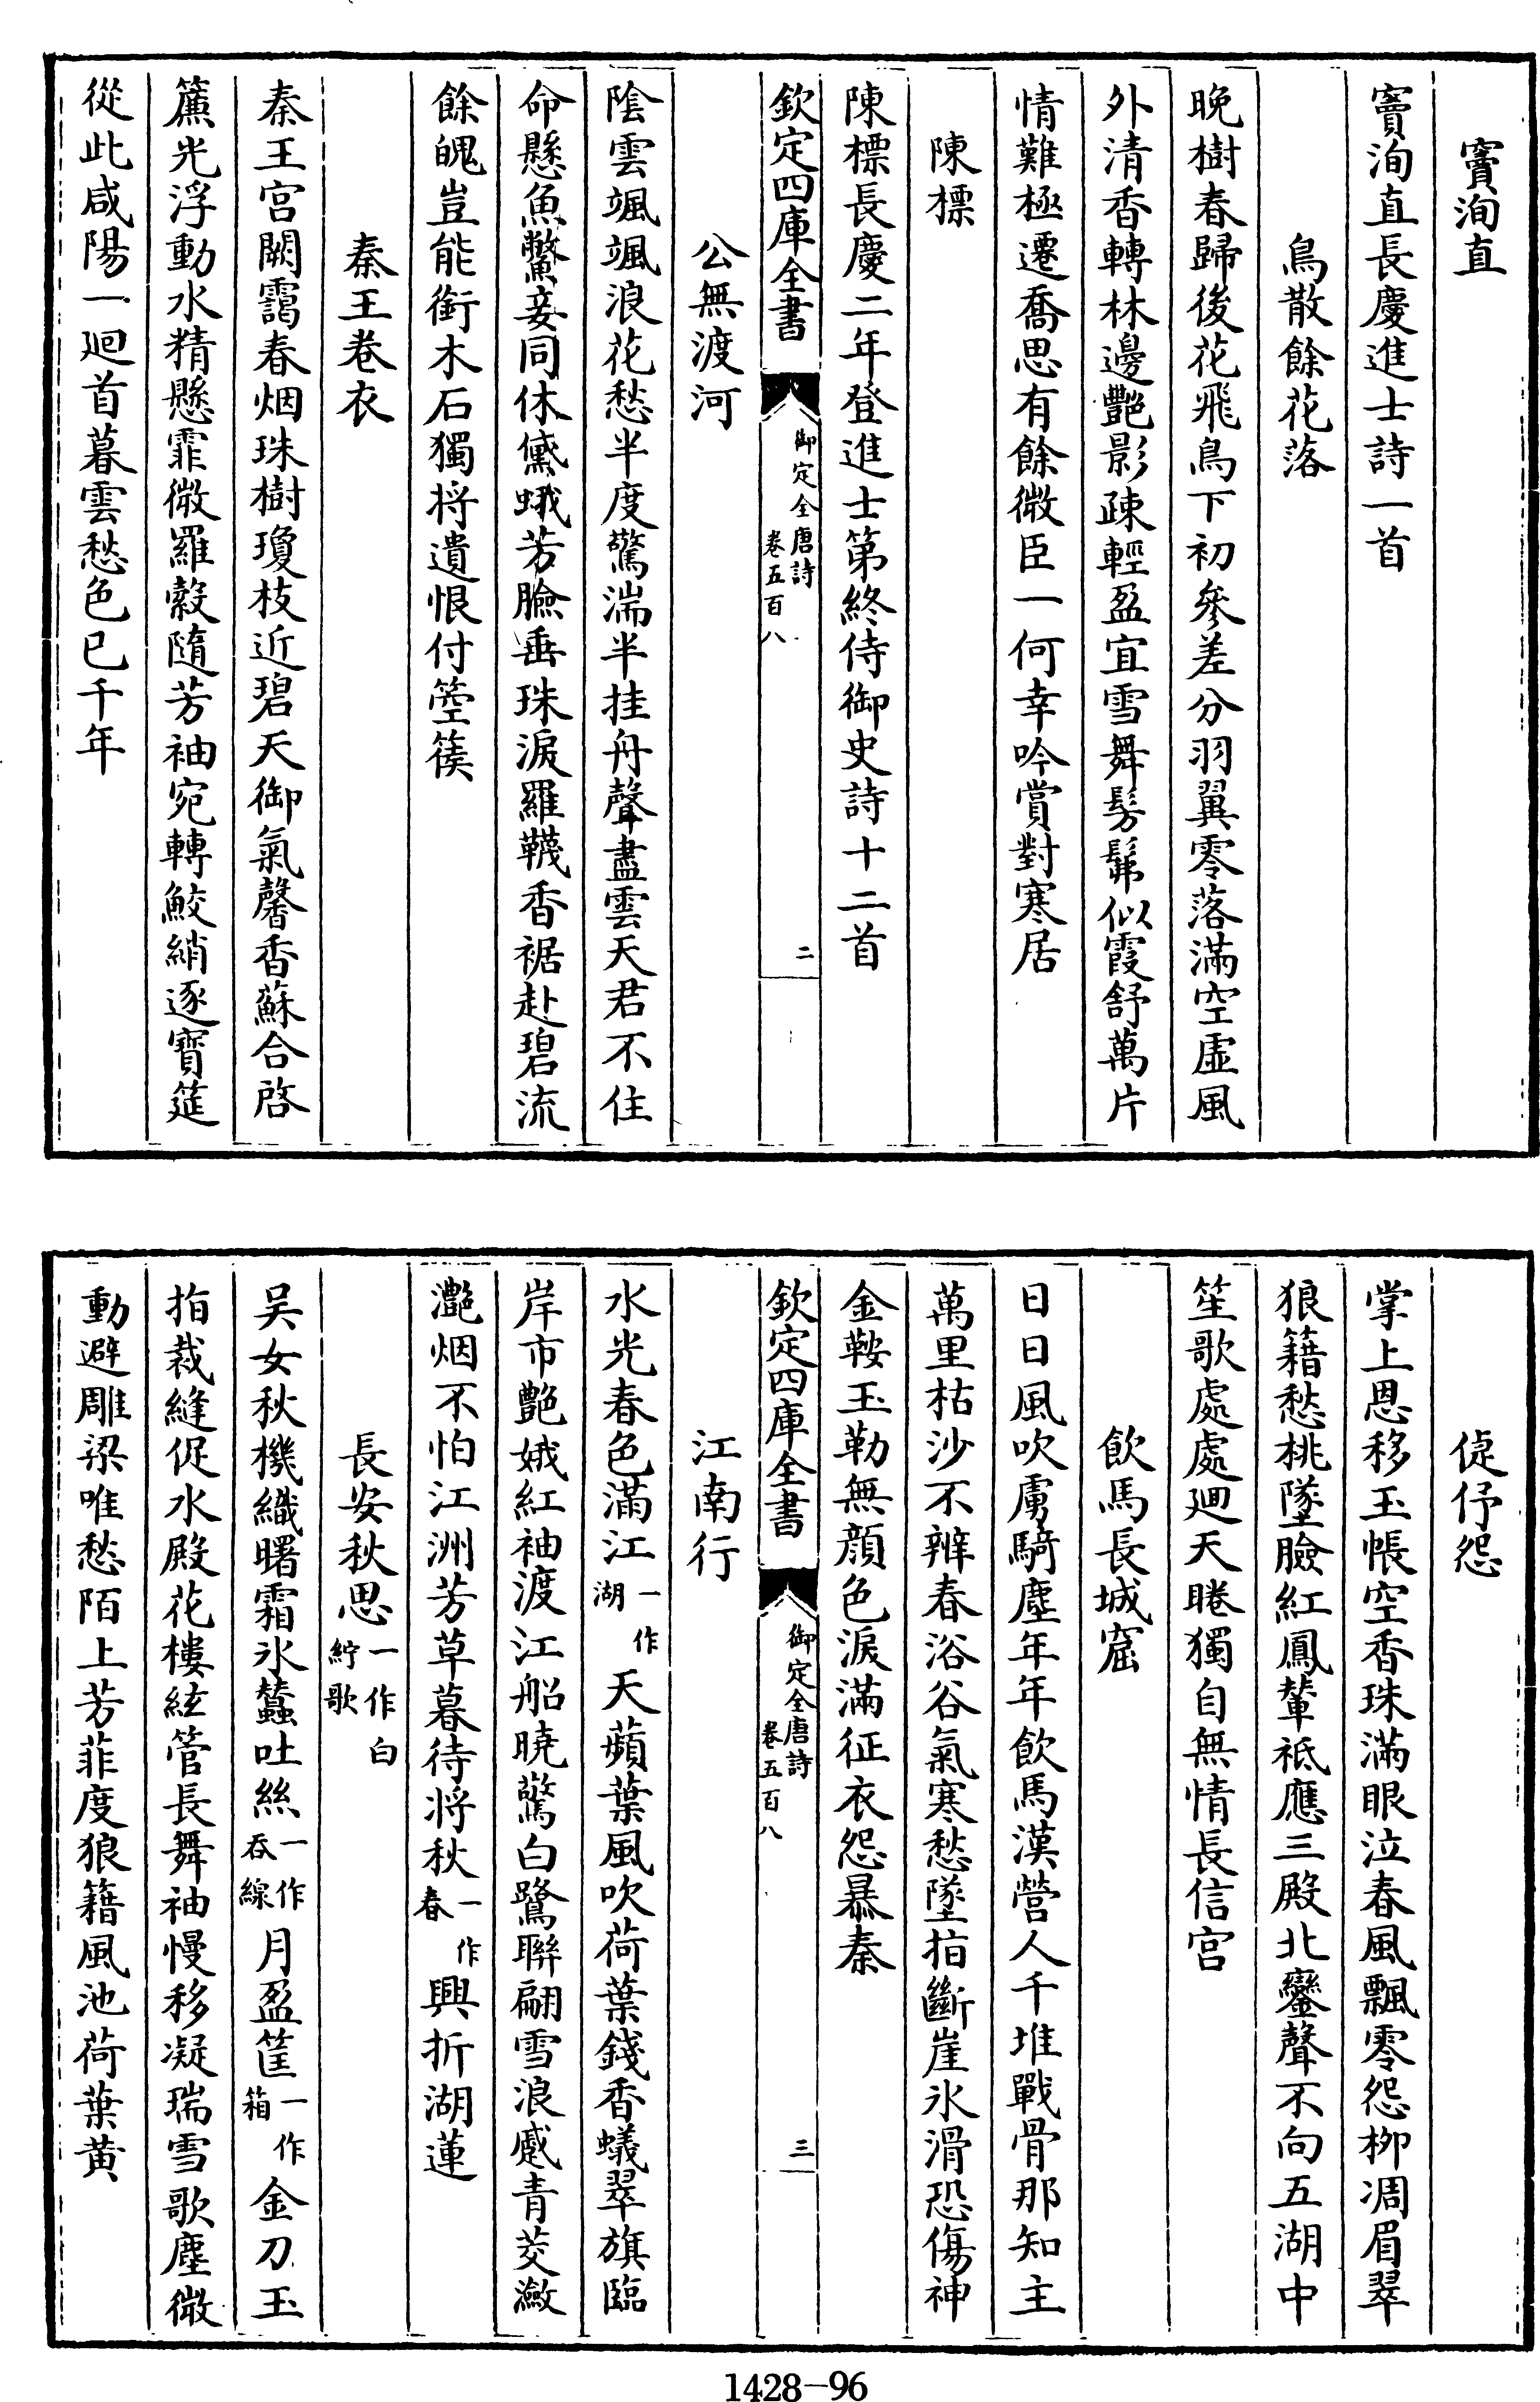 竇洵直
竇洵直長慶進士詩一首
鳥散餘花落
晚樹春歸後花飛鳥下初參差分羽翼零落滿空虛風
外清香轉林邊艷影疎輕盈宜雪舞髣髴似霞舒萬片
情難極遷喬思有餘微臣一何幸吟賞對寒居
陳標
陳標長慶二年登進士第終侍御史詩十二首
欽定四庫全書
御定全唐詩
卷五百八
二
公無渡河
陰雲颯颯浪花愁半度驚湍半挂舟聲盡雲天君不住
命懸魚鼈妾同休黛蛾芳臉垂珠淚羅韈香裾赴碧流
餘魄豈能銜木石獨將遺恨付箜篌
秦王卷衣
秦王宮闕靄春烟珠樹瓊枝近碧天御氣馨香蘇合啓
簾光浮動水精懸霏微羅縠隨芳袖宛轉鮫綃逐寳筵
從此咸陽一廻首暮雲愁色已千年
倢伃怨
掌上恩移玉帳空香珠滿眼泣春風飄零怨柳凋眉翠
狼籍愁桃墜臉紅鳳輦祗應三殿北鑾聲不向五湖中
笙歌處處廻天睠獨自無情長信宮
飲馬長城窟
日日風吹虜騎塵年年飲馬漢營人千堆戰骨那知主
萬里枯沙不辨春浴谷氣寒愁墜指斷崖氷滑恐傷神
金鞍玉勒無顔色淚滿征衣怨暴秦
欽定四庫全書
御定全唐詩
卷五百八
三
江南行
水光春色滿江一作湖天蘋葉風吹荷葉錢香蟻翠旗臨
岸市艷娥紅袖渡江船曉驚白鷺聯翩雪浪蹙青茭瀲
灔烟不怕江洲芳草暮待將秋一作春興折湖蓮
長安秋思一作白紵歌
吳女秋機織曙霜氷蠶吐絲一作吞線月盈筐一作箱金刀玉
指裁縫促水殿花樓絃管長舞袖慢移凝瑞雪歌塵微
動避雕梁唯愁陌上芳菲度狼籍風池荷葉黃
1428-96